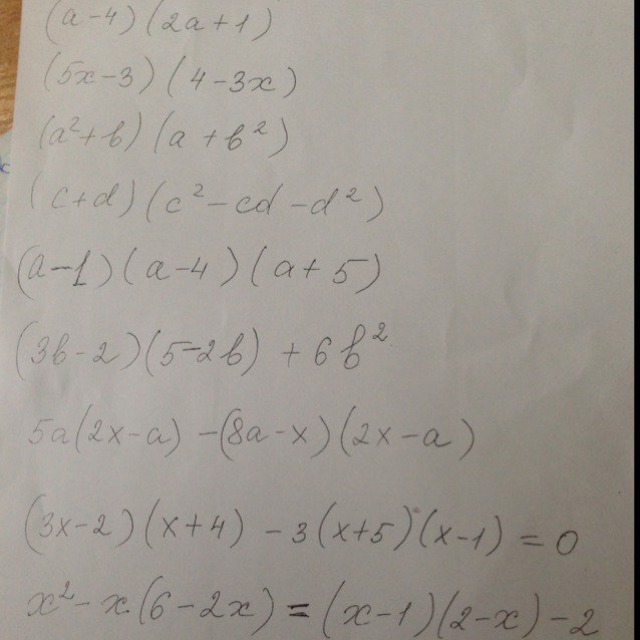 (a-4)(2a+1)
(5x-3)(4-3x)
(a²+b)(a+b²)
(c+d)(c²-cd-d²)
(a-1)(a-4)(a+5)
(3b-2)(5-2b)+6b²
5a(2x-a)-(8a-x)(2x-a)
(3x-2)(x+4)-3(x+5)(x-1)=0
x²-x(6-2x)=(x-1)(2-x)-2